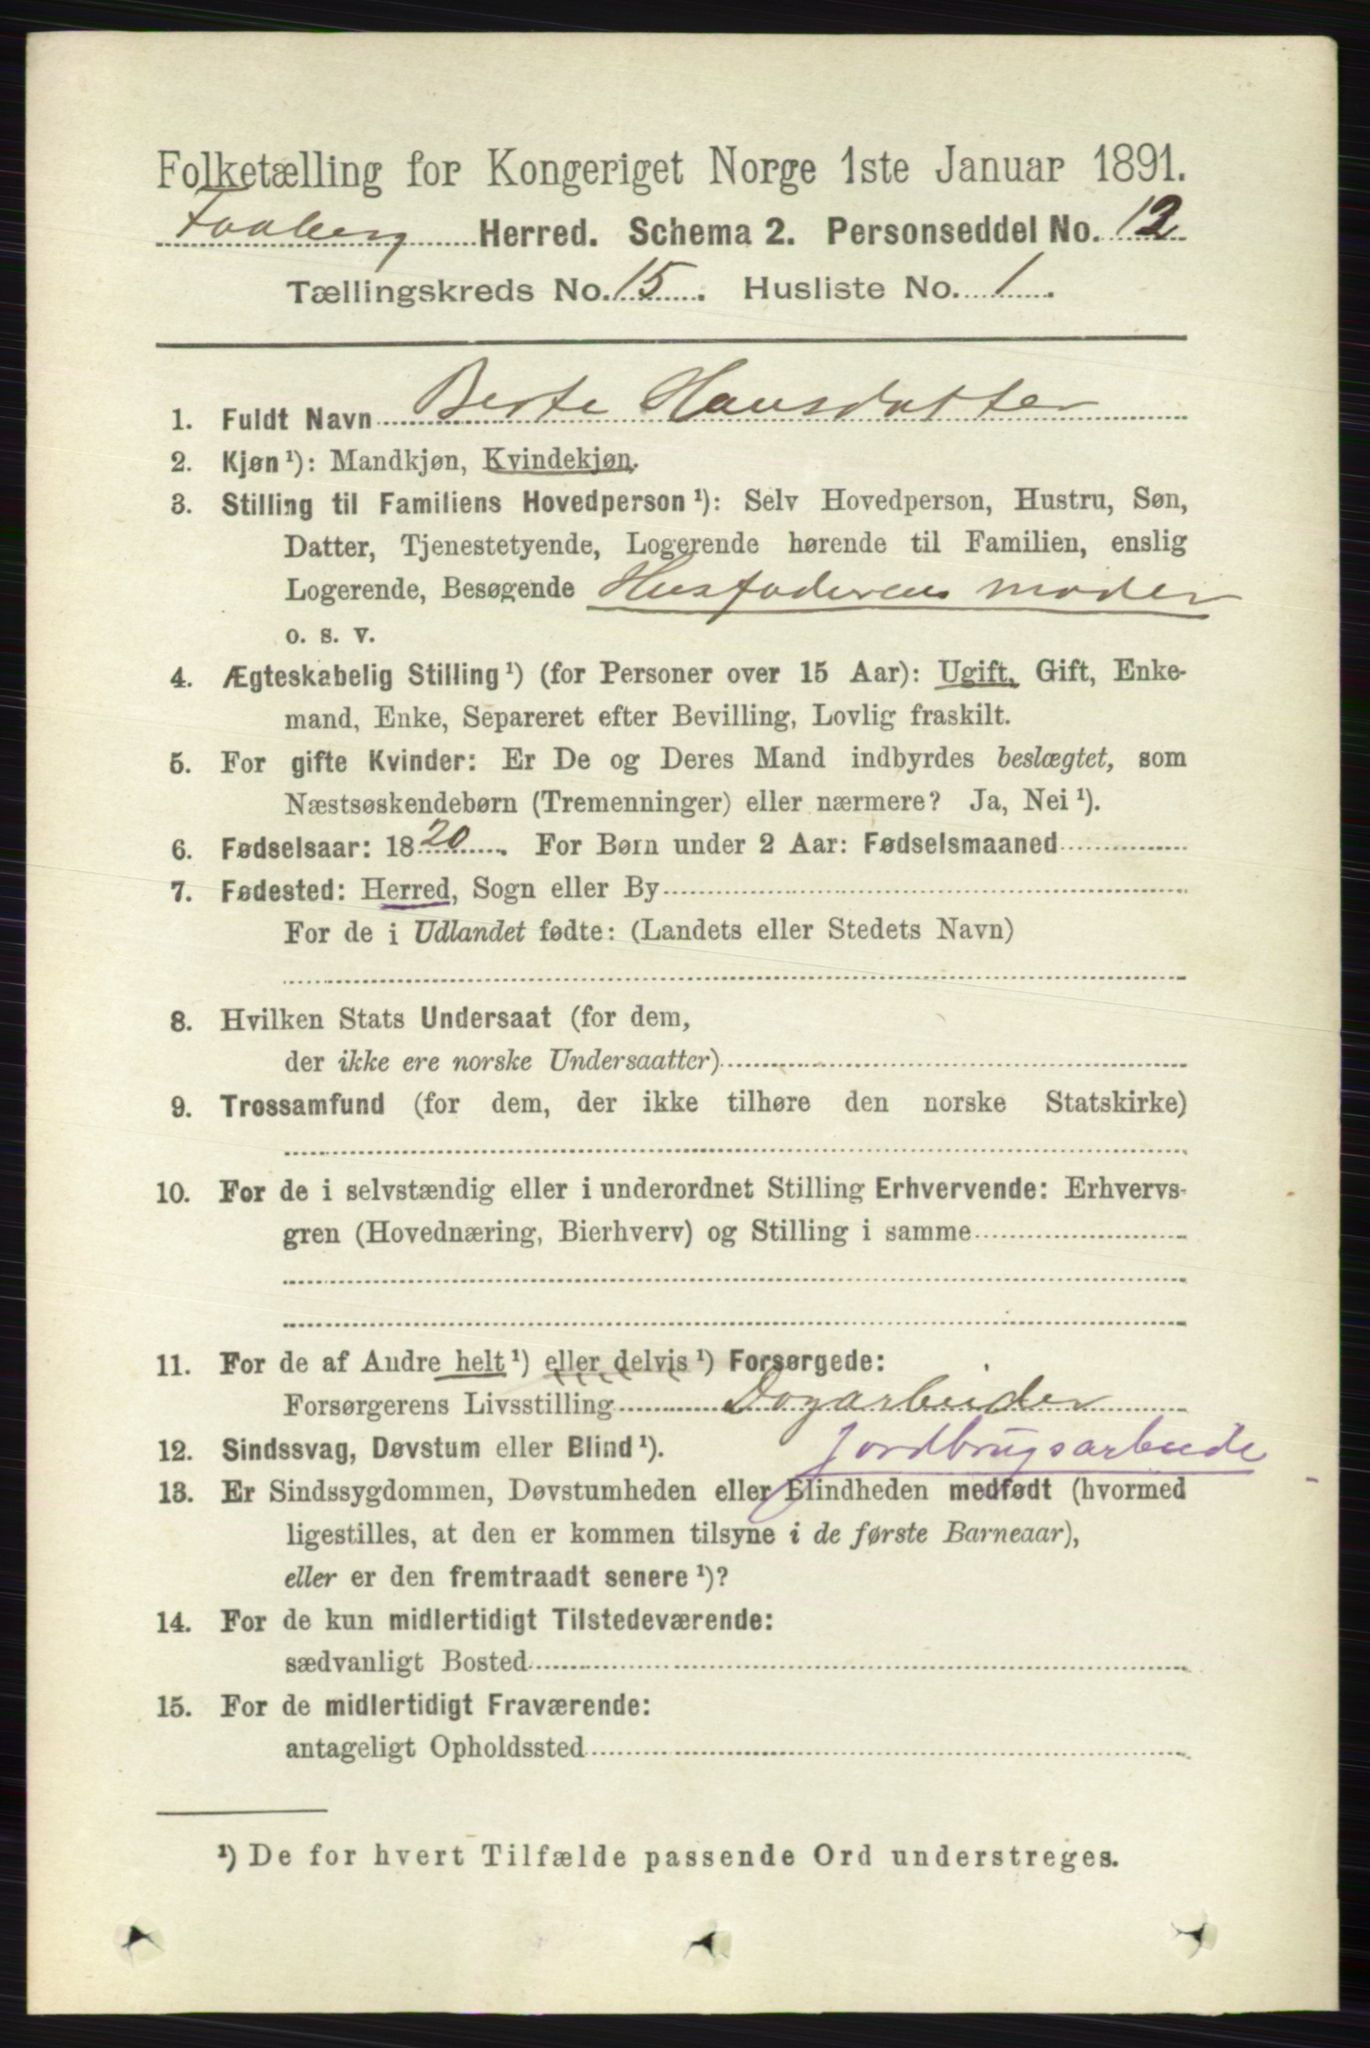 Folketælling for Kongeriget Norge 1ste Januar 1891.
Faaberg Herred. Schema 2. Personseddel No. 12
Tællingskreds No. 15. Husliste No. 1.
1. Fuldt Navn Berte Hansdatter
2. Kjøn¹): Mandkjøn, Kvindekjøn.
3. Stilling til Familiens Hovedperson¹): Selv Hovedperson, Hustru, Søn,
Datter, Tjenestetyende, Logerende hørende til Familien, enslig
Logerende, Besøgende Husfaderens moder
o. s. v.
4. Ægteskabelig Stilling¹) (for Personer over 15 Aar): Ugift, Gift, Enke-
mand, Enke, Separeret efter Bevilling, Lovlig fraskilt.
5. For gifte Kvinder: Er De og Deres Mand indbyrdes beslægtet, som
Næstsøskendebørn (Tremenninger) eller nærmere? Ja, Nei¹).
6. Fødselsaar: 1820. For Børn under 2 Aar: Fødselsmaaned
7. Fødested: Herred, Sogn eller By
For de i Udlandet fødte: (Landets eller Stedets Navn)
8. Hvilken Stats Undersaat (for dem,
der ikke ere norske Undersaatter)
9. Trossamfund (for dem, der ikke tilhøre den norske Statskirke)
10. For de i selvstændig eller i underordnet Stilling Erhvervende: Erhvervs-
gren (Hovednæring, Bierhverv) og Stilling i samme
11. For de af Andre helt¹) eller delvis¹) Forsørgede:
Forsørgerens Livsstilling Dagarbeider
12. Sindssvag, Døvstum eller Blind¹). Jordbrugsarbeide
13. Er Sindssygdommen, Døvstumheden eller Blindheden medfødt (hvormed
ligestilles, at den er kommen tilsyne i de første Barneaar),
eller er den fremtraadt senere¹)?
14. For de kun midlertidigt Tilstedeværende:
sædvanligt Bosted
15. For de midlertidigt Fraværende:
antageligt Opholdssted
¹) De for hvert Tilfælde passende Ord understreges.